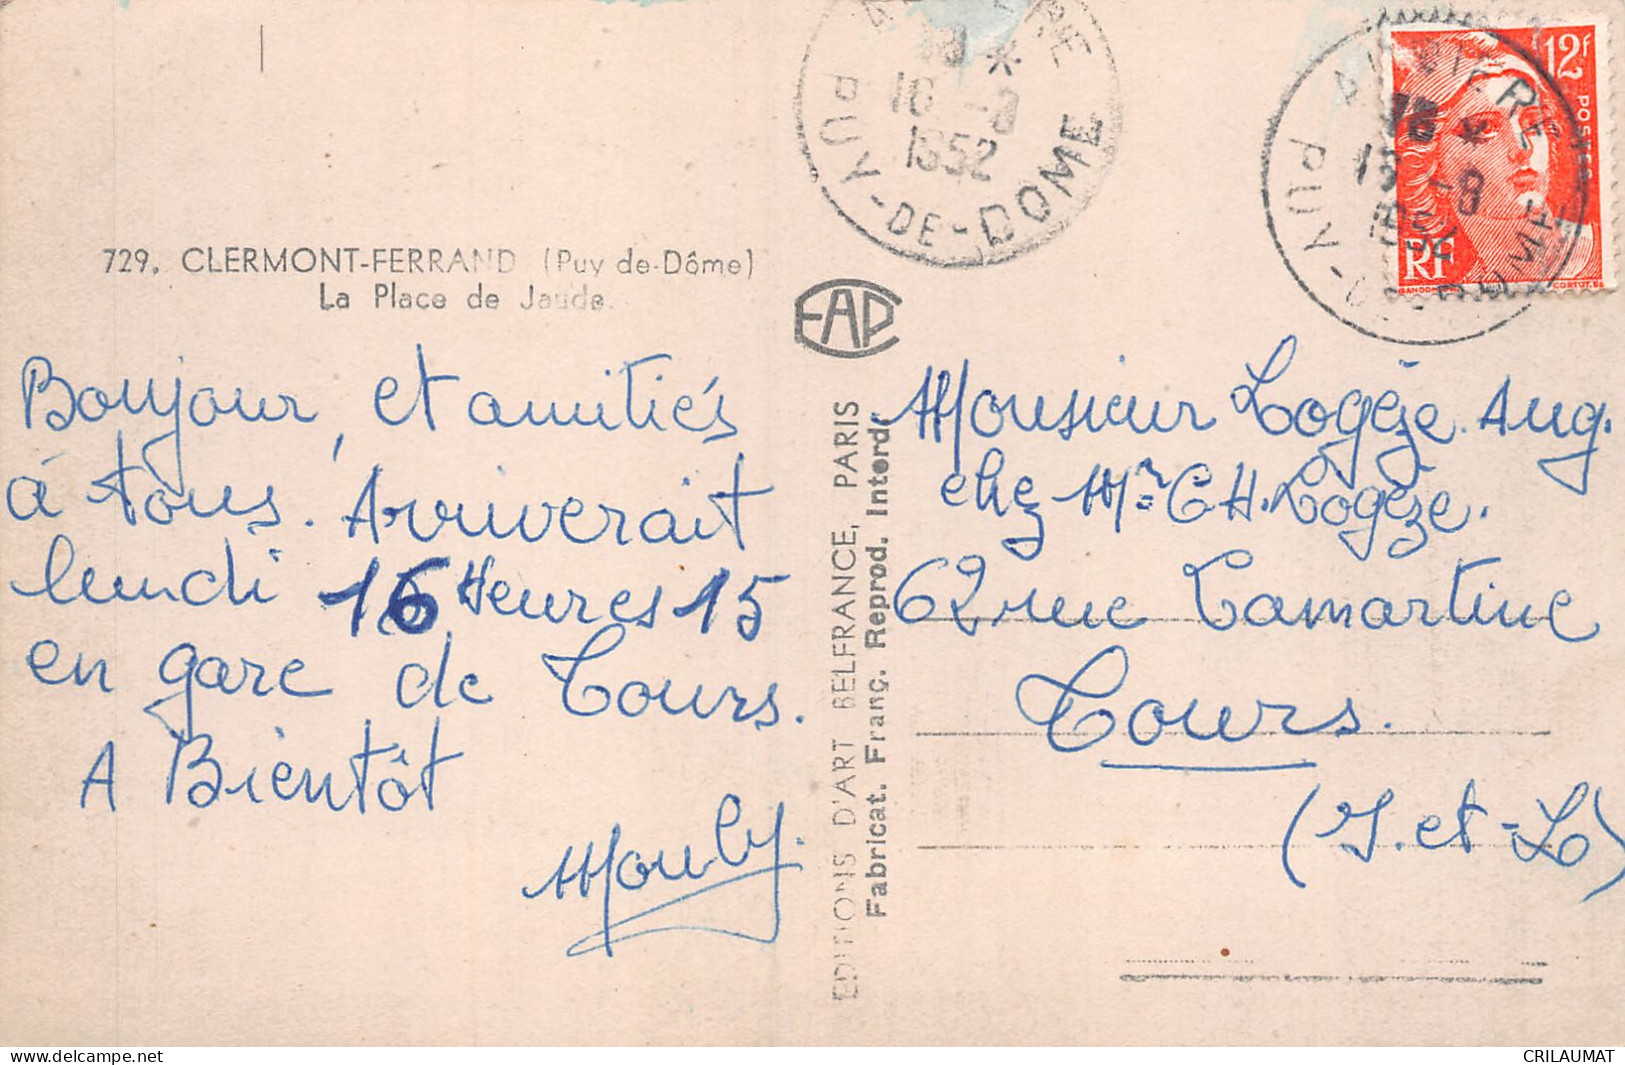 729. CLERMONT-FERRAND (Puy-de-Dôme)
La Place de Jaude.
Bonjour, et amitiés
à tous. Arriverait
lundi 16 Heures 15
en gare de Tours.
A Bientôt
Mouly.
EAP
EDITIONS D'ART BELFRANCE, PARIS
Fabricat. Franç. Reprod. Interd.
18 *
16 -8
1952
PUY-DE-DOME
18 *
1952
PUY-DE-DOME
12f
POSTES
RF
GANDON
CORTOT.SC
Monsieur Logèze Aug.
chez Mr CH. Logèze.
62 rue Lamartine
Tours.
(I. et-L)
CRILAUMAT